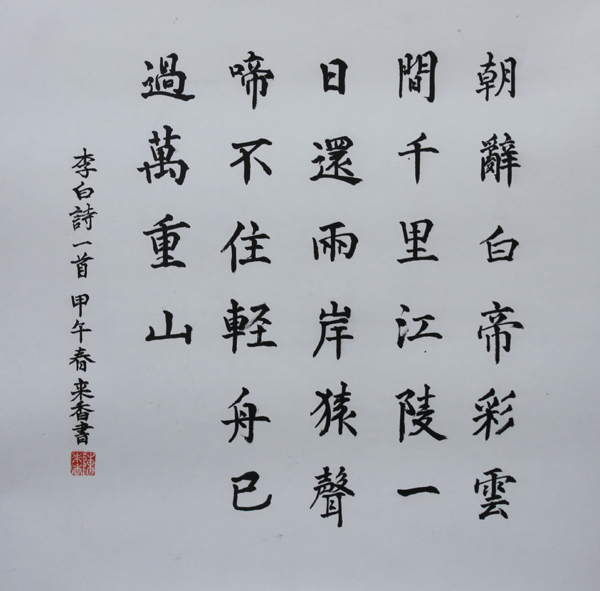 朝辭白帝彩雲
間千里江陵一
日還兩岸猿聲
啼不住軽舟已
過萬重山
李白詩一首 甲午春 来香書